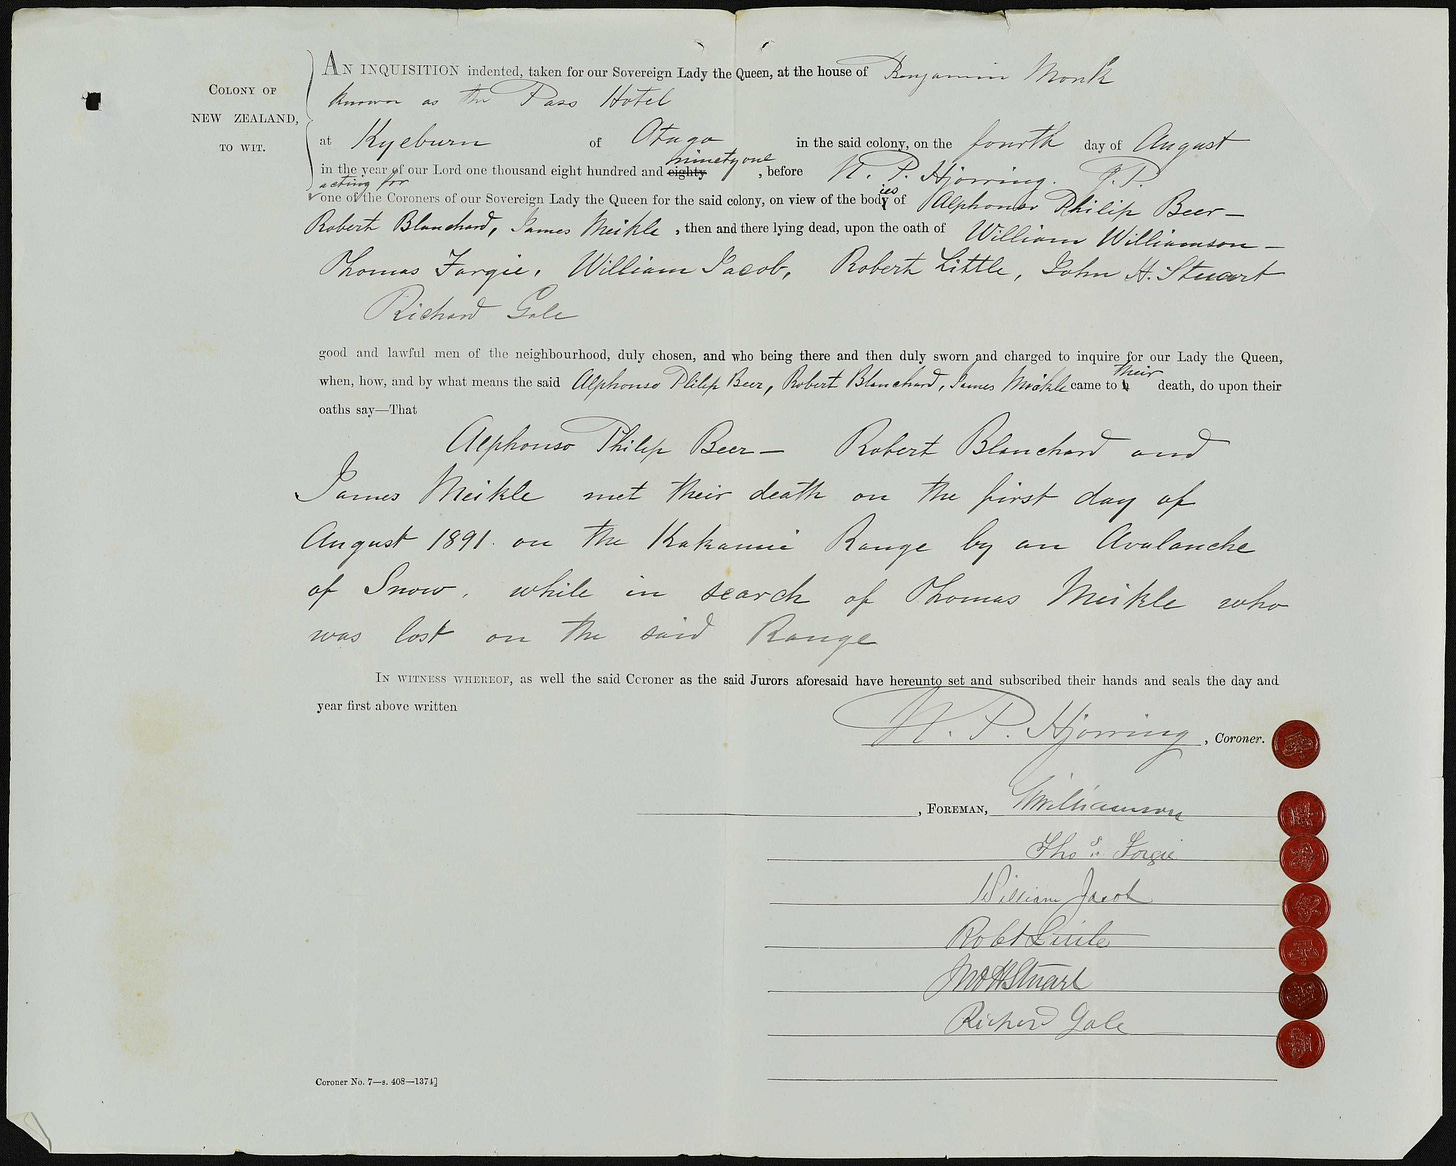 COLONY OF
NEW ZEALAND,
TO WIT.
AN INQUISITION indented, taken for our Sovereign Lady the Queen, at the house of Benjamin Monk
known as the Pass Hotel
at Kyeburn of Otago in the said colony, on the fourth day of August
ninety one
in the year of our Lord one thousand eight hundred and eighty, before N. P. Hjorring. J.P.
acting for
one of the Coroners of our Sovereign Lady the Queen for the said colony, on view of the bodies of Alphonso Philip Beer —
Robert Blanchard, James Meikle, then and there lying dead, upon the oath of William Williamson —
Thomas Forgie, William Jacob, Robert Little, John H. Stuart
Richard Gale
good and lawful men of the neighbourhood, duly chosen, and who being there and then duly sworn and charged to inquire for our Lady the Queen,
when, how, and by what means the said Alphonso Philip Beer, Robert Blanchard, James Meikle came to their death, do upon their
oaths say—That
Alphonso Philip Beer — Robert Blanchard and
James Meikle met their death on the first day of
August 1891. on the Kakanui Range by an Avalanche
of Snow, while in search of Thomas Meikle who
was lost on the said Range
IN WITNESS WHEREOF, as well the said Coroner as the said Jurors aforesaid have hereunto set and subscribed their hands and seals the day and
year first above written
N. P. Hjorring, Coroner.
, FOREMAN, Williamson
Thos. Forgie
William Jacob
Robt Little
Jno H Stuart
Richard Gale
Coroner No. 7—s. 408—1374]